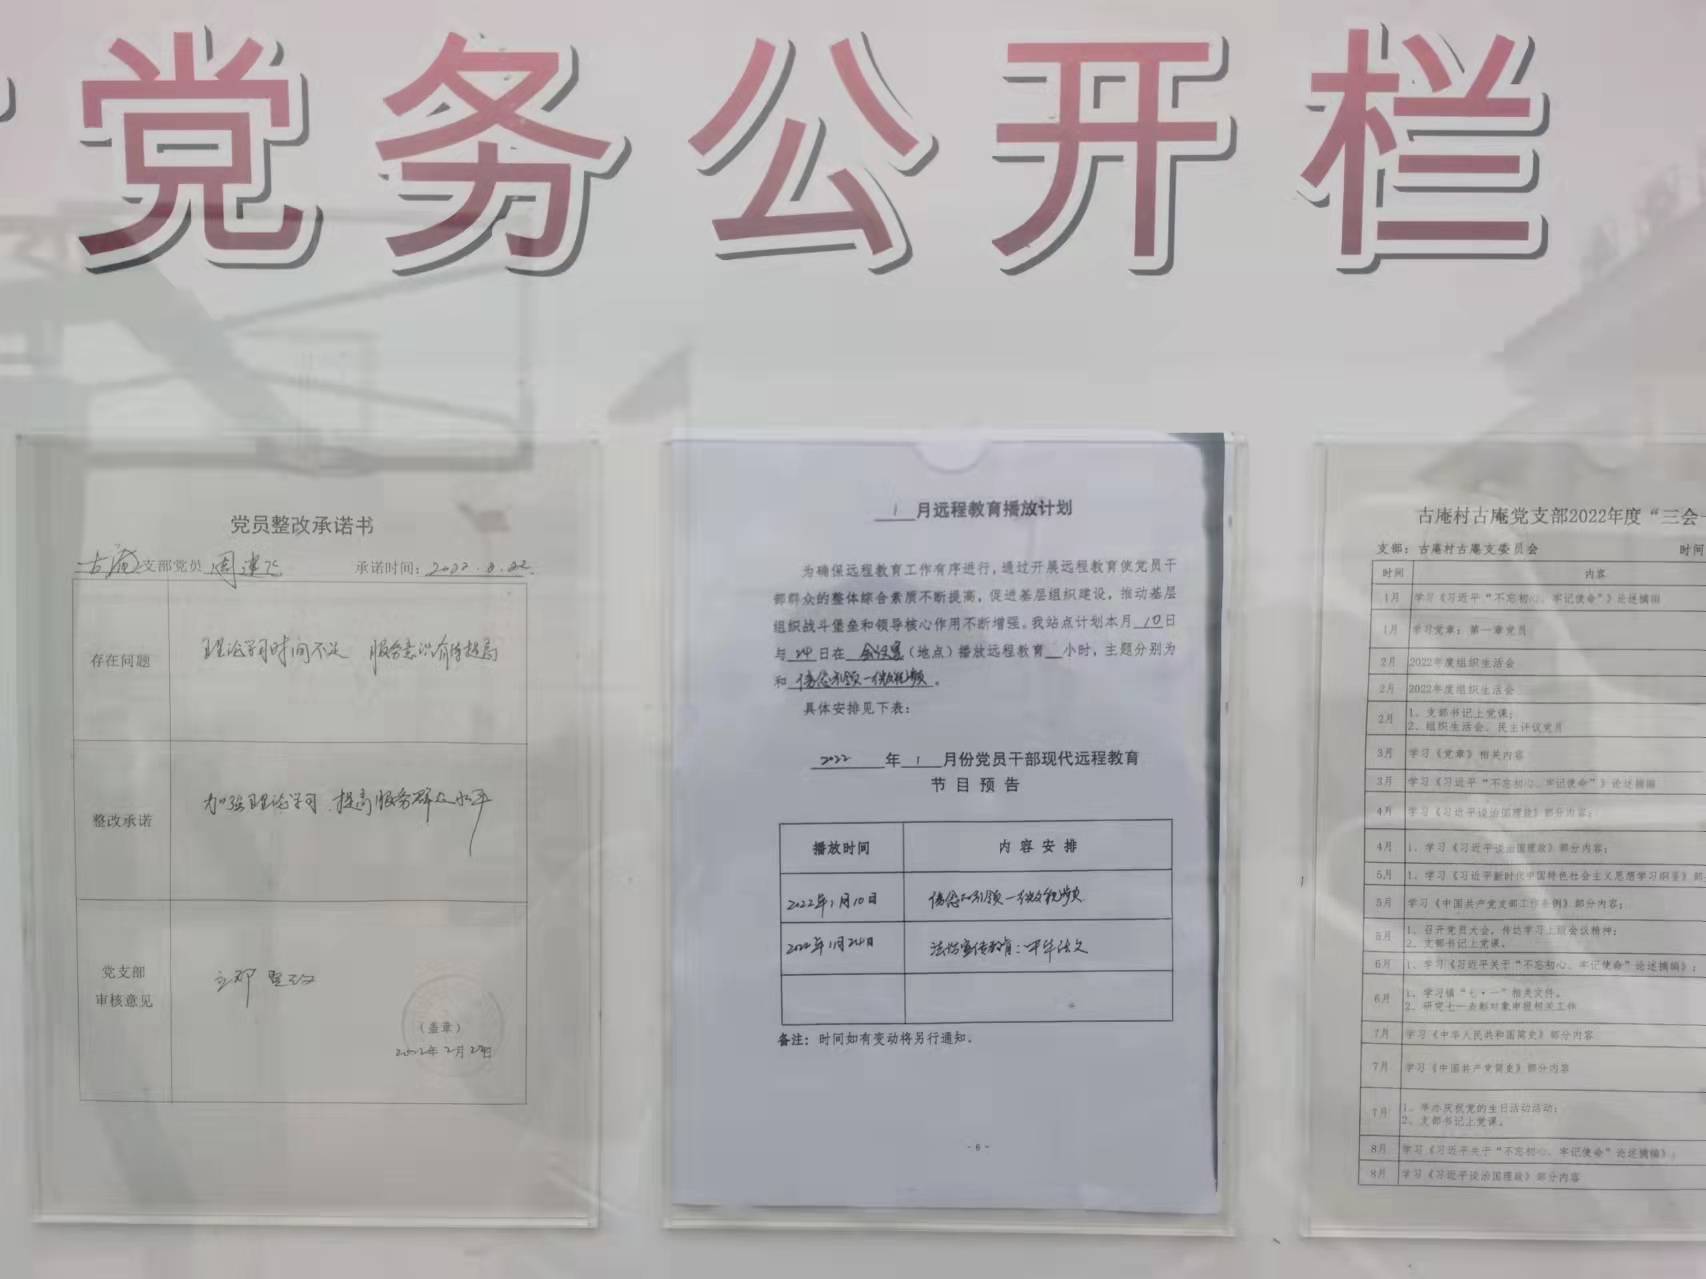 党务公开栏
党员整改承诺书
古庵支部党员 周建飞 承诺时间：2022.
存在问题 理论学习时间不足 服务意识有待提高
整改承诺 加强理论学习、提高服务群众水平
党支部
审核意见 立即整改
（盖章）
2022年2月24日
1月远程教育播放计划
为确保远程教育工作有序进行，通过开展远程教育使党员干
部群众的整体综合素质不断提高，促进基层组织建设，推动基层
组织战斗堡垒和领导核心作用不断增强。我站点计划本月10日
与24日在会议室（地点）播放远程教育 小时，主题分别为
和
具体安排见下表：
2022年1月份党员干部现代远程教育
节目预告
播放时间 内容安排
2022年1月10日
2022年1月24日
备注：时间如有变动将另行通知。
- 6 -
古庵村古庵党支部2022年度“三会一
支部：古庵村古庵支委员会 时间
时间 内容
1月 学习《习近平“不忘初心、牢记使命”》论述摘编
1月 学习党章：第一章党员
2月 2022年度组织生活会
2月 2022年度组织生活会
2月 1、支部书记上党课；
2、组织生活会、民主评议党员
3月 学习《党章》相关内容
3月 学习《习近平“不忘初心、牢记使命”》论述摘编
4月 学习《习近平谈治国理政》部分内容；
4月 1、学习《习近平谈治国理政》部分内容；
5月 1、学习《习近平新时代中国特色社会主义思想学习纲要》部
5月 学习《中国共产党支部工作条例》部分内容；
5月 1、召开党员大会，传达学习上级会议精神；
2、支部书记上党课。
6月 1、学习《习近平关于“不忘初心、牢记使命”论述摘编》；
6月 1、学习镇“七·一”相关文件。
2、研究七一表彰对象申报相关工作
7月 学习《中华人民共和国简史》部分内容
7月 学习《中国共产党简史》部分内容
7月 1、举办庆祝党的生日活动活动；
2、支部书记上党课。
8月 学习《习近平关于“不忘初心、牢记使命”论述摘编》；
8月 学习《习近平谈治国理政》部分内容